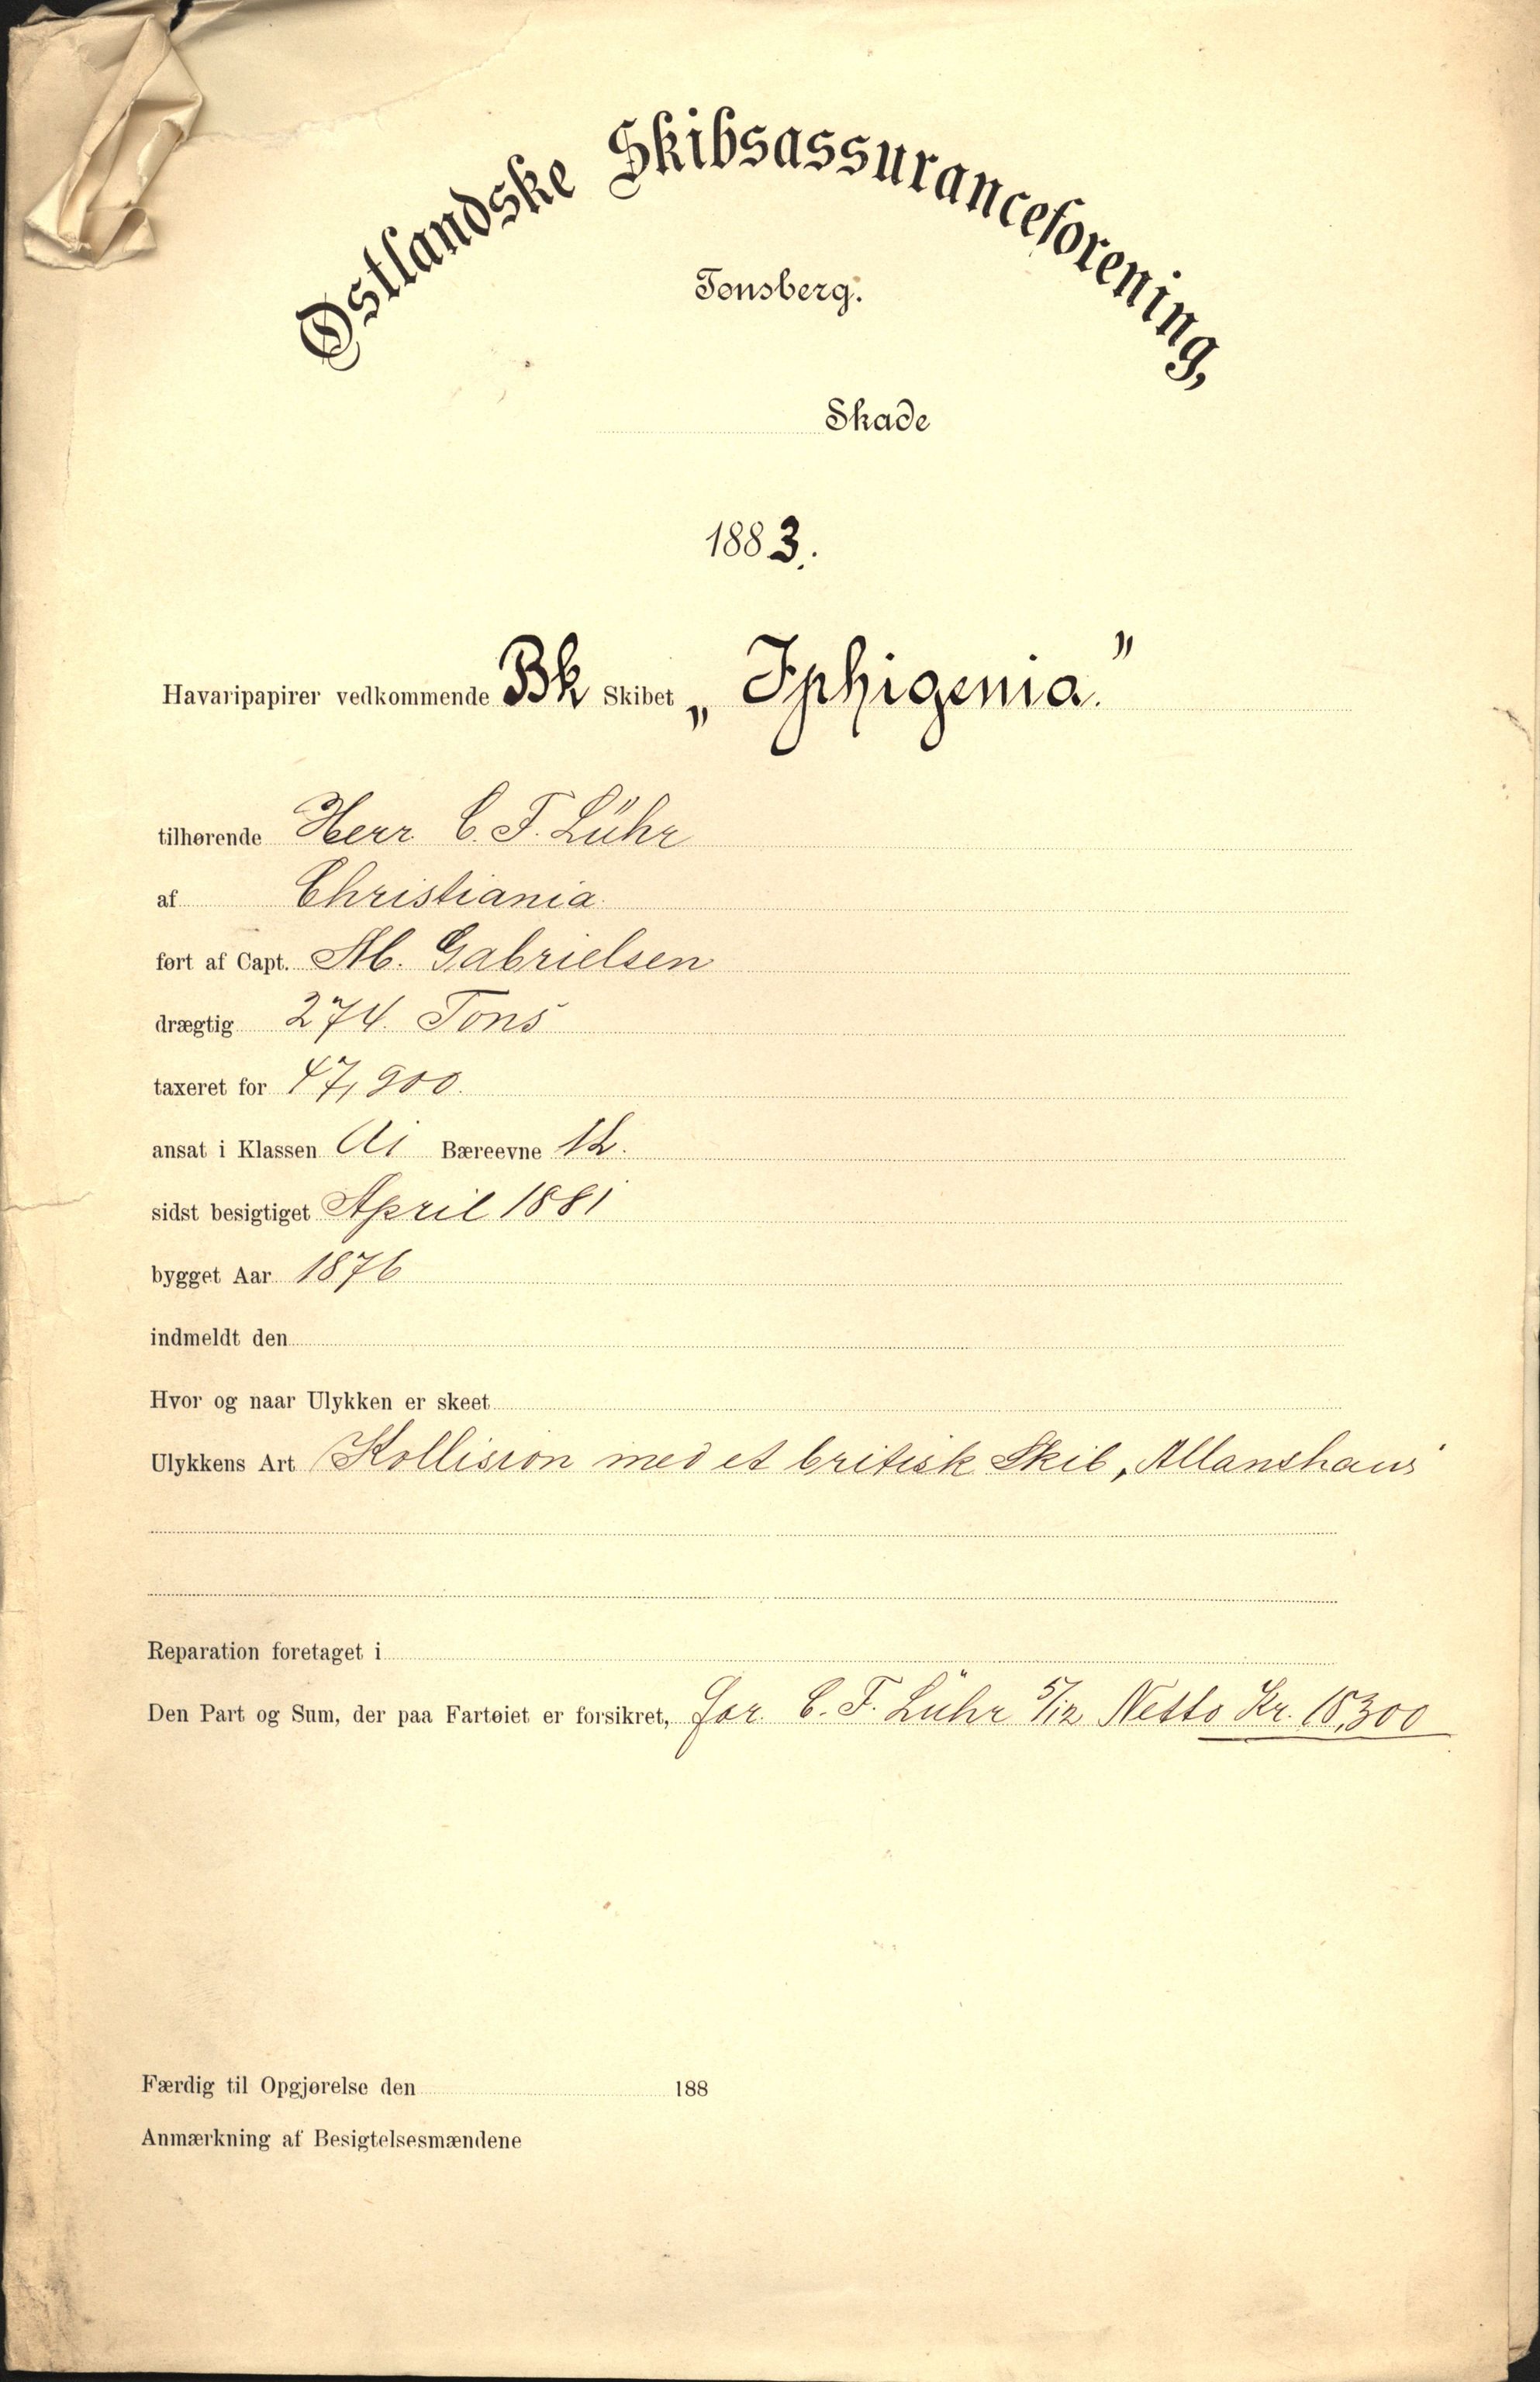 Østlandske Skibsassuranceforening,
Tønsberg.
Skade
1883.
Havaripapirer vedkommende Bk Skibet „Iphigenia."
tilhørende Herr C. F. Lühr
af Christiania.
ført af Capt. Ab. Gabrielsen
drægtig 274. Tons
taxeret for 47,900.
ansat i Klassen A1 Bæreevne 12.
sidst besigtiget April 1881
bygget Aar 1876
indmeldt den
Hvor og naar Ulykken er skeet
Ulykkens Art Kollision med et britisk Skib, Allanshaw
Reparation foretaget i
Den Part og Sum, der paa Fartøiet er forsikret, for C. F. Lühr 5/12 Netto Kr. 18,300
Færdig til Opgjørelse den 188
Anmærkning af Besigtelsesmændene